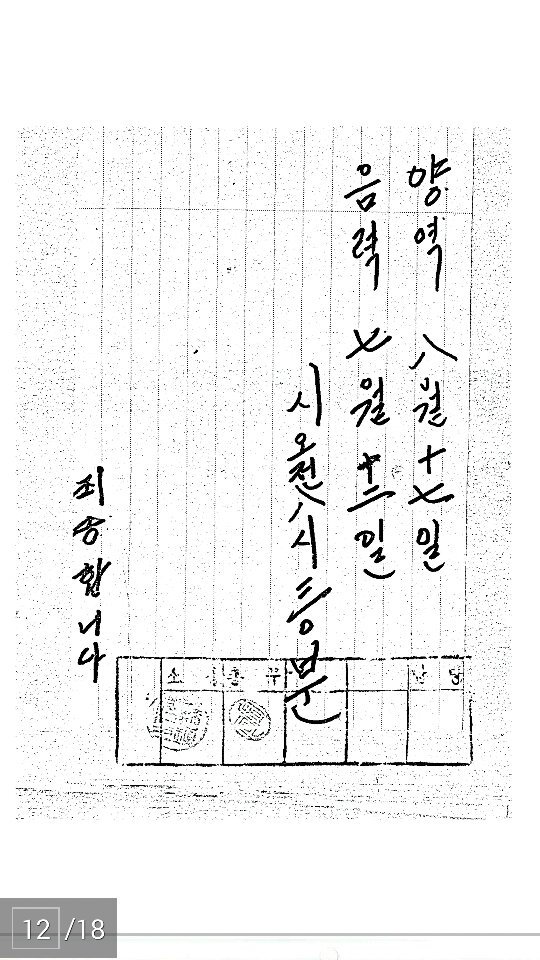 양역 八월 十七일
음력 七월 十二일
시 오전 八시
죄송합니다
12 /18